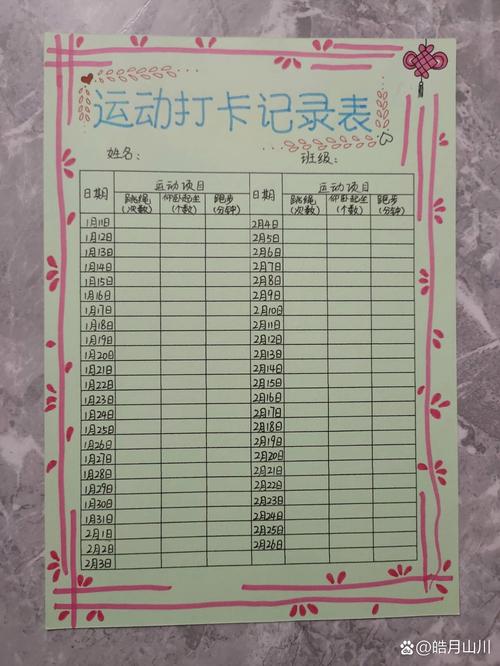 运动打卡记录表
姓名： 班级：
日期 运动项目 日期 运动项目
跳绳(次数) 仰卧起坐(个数) 跑步(分钟) 跳绳(次数) 仰卧起坐(个数) 跑步(分钟)
1月11日 2月4日
1月12日 2月5日
1月13日 2月6日
1月14日 2月7日
1月15日 2月8日
1月16日 2月9日
1月17日 2月10日
1月18日 2月11日
1月19日 2月12日
1月20日 2月13日
1月21日 2月14日
1月22日 2月15日
1月23日 2月16日
1月24日 2月17日
1月25日 2月18日
1月26日 2月19日
1月27日 2月20日
1月28日 2月21日
1月29日 2月22日
1月30日 2月23日
1月31日 2月24日
2月1日 2月25日
2月2日 2月26日
2月3日
@皓月山川